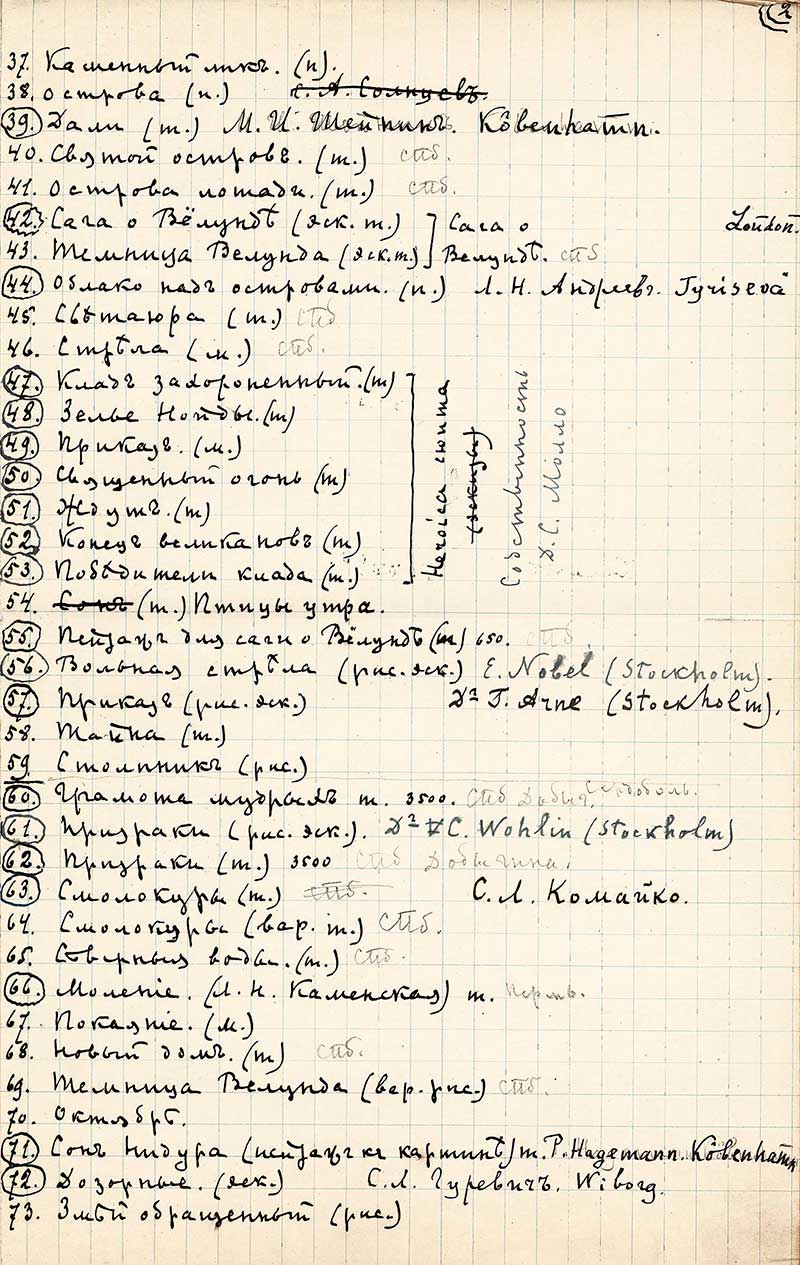 2
37. Каменный ликъ. (п).
38. Острова (п.) с. А. Солнцевъ.
39. Дали (т.) М. И. Шейнинъ. Köbenhatn.
40. Святой островъ. (т.) СПб.
41. Острова лошади. (т.) СПб.
42. Сага о Вёлундѣ (эск. т.) Сага о London.
43. Темница Велунда (эск. т.) Велундѣ. СПб
44. Облако надъ островами. (п.) Л. Н. Андреевъ. Tyrisevä
45. Свѣтаюра (т.) СПб
46. Стрѣла (м.) СПб.
47. Кладъ захороненный. (т)
48. Зелье Нойды. (т)
49. Приказъ. (м.)
50. Священный огонь (т)
51. Ждутъ. (т)
52. Конецъ великановъ (т)
53. Побѣдители клада (т.)
Heroica сюита
(эскизы)
Собственность
Д. С. Молло
54. Сонъ (т.) Птицы утра.
55. Пейзажъ для саги о Вёлундѣ (т) 650. СПб
56. Вольная стрѣла (рис. эск.) E. Nobel (Stockholm).
57. Приказъ (рис. эск.) Dr T. Arne (Stockholm).
58. Тайна (т.)
59. Столпникъ (рис.)
60. Грамота мудрыхъ т. 3500. СПб Добыч. Сердоболь.
61. Призраки (рис. эск.). Dr C. Wohlin (Stockholm)
62. Призраки (т.) 3500 СПб Добычина.
63. Смолокуры (т.) СПб. С. Л. Комайко.
64. Смолокуры (вар. т.) СПб.
65. Сѣверныя воды. (т.) СПб.
66. Моленіе. (Л. Н. Каменская) т. Пермь.
67. Покаяніе. (м.)
68. Новый домъ. (т) СПб.
69. Темница Велунда (вар. рис.) СПб.
70. Октябрь.
71. Сонъ Нидура (пейзажъ къ картинѣ) т. P. Hagemann. Köbenhatn
72. Дозорные. (эск.) С. Л. Гуревичъ. Wiborg.
73. Змѣй обращенный (рис.)